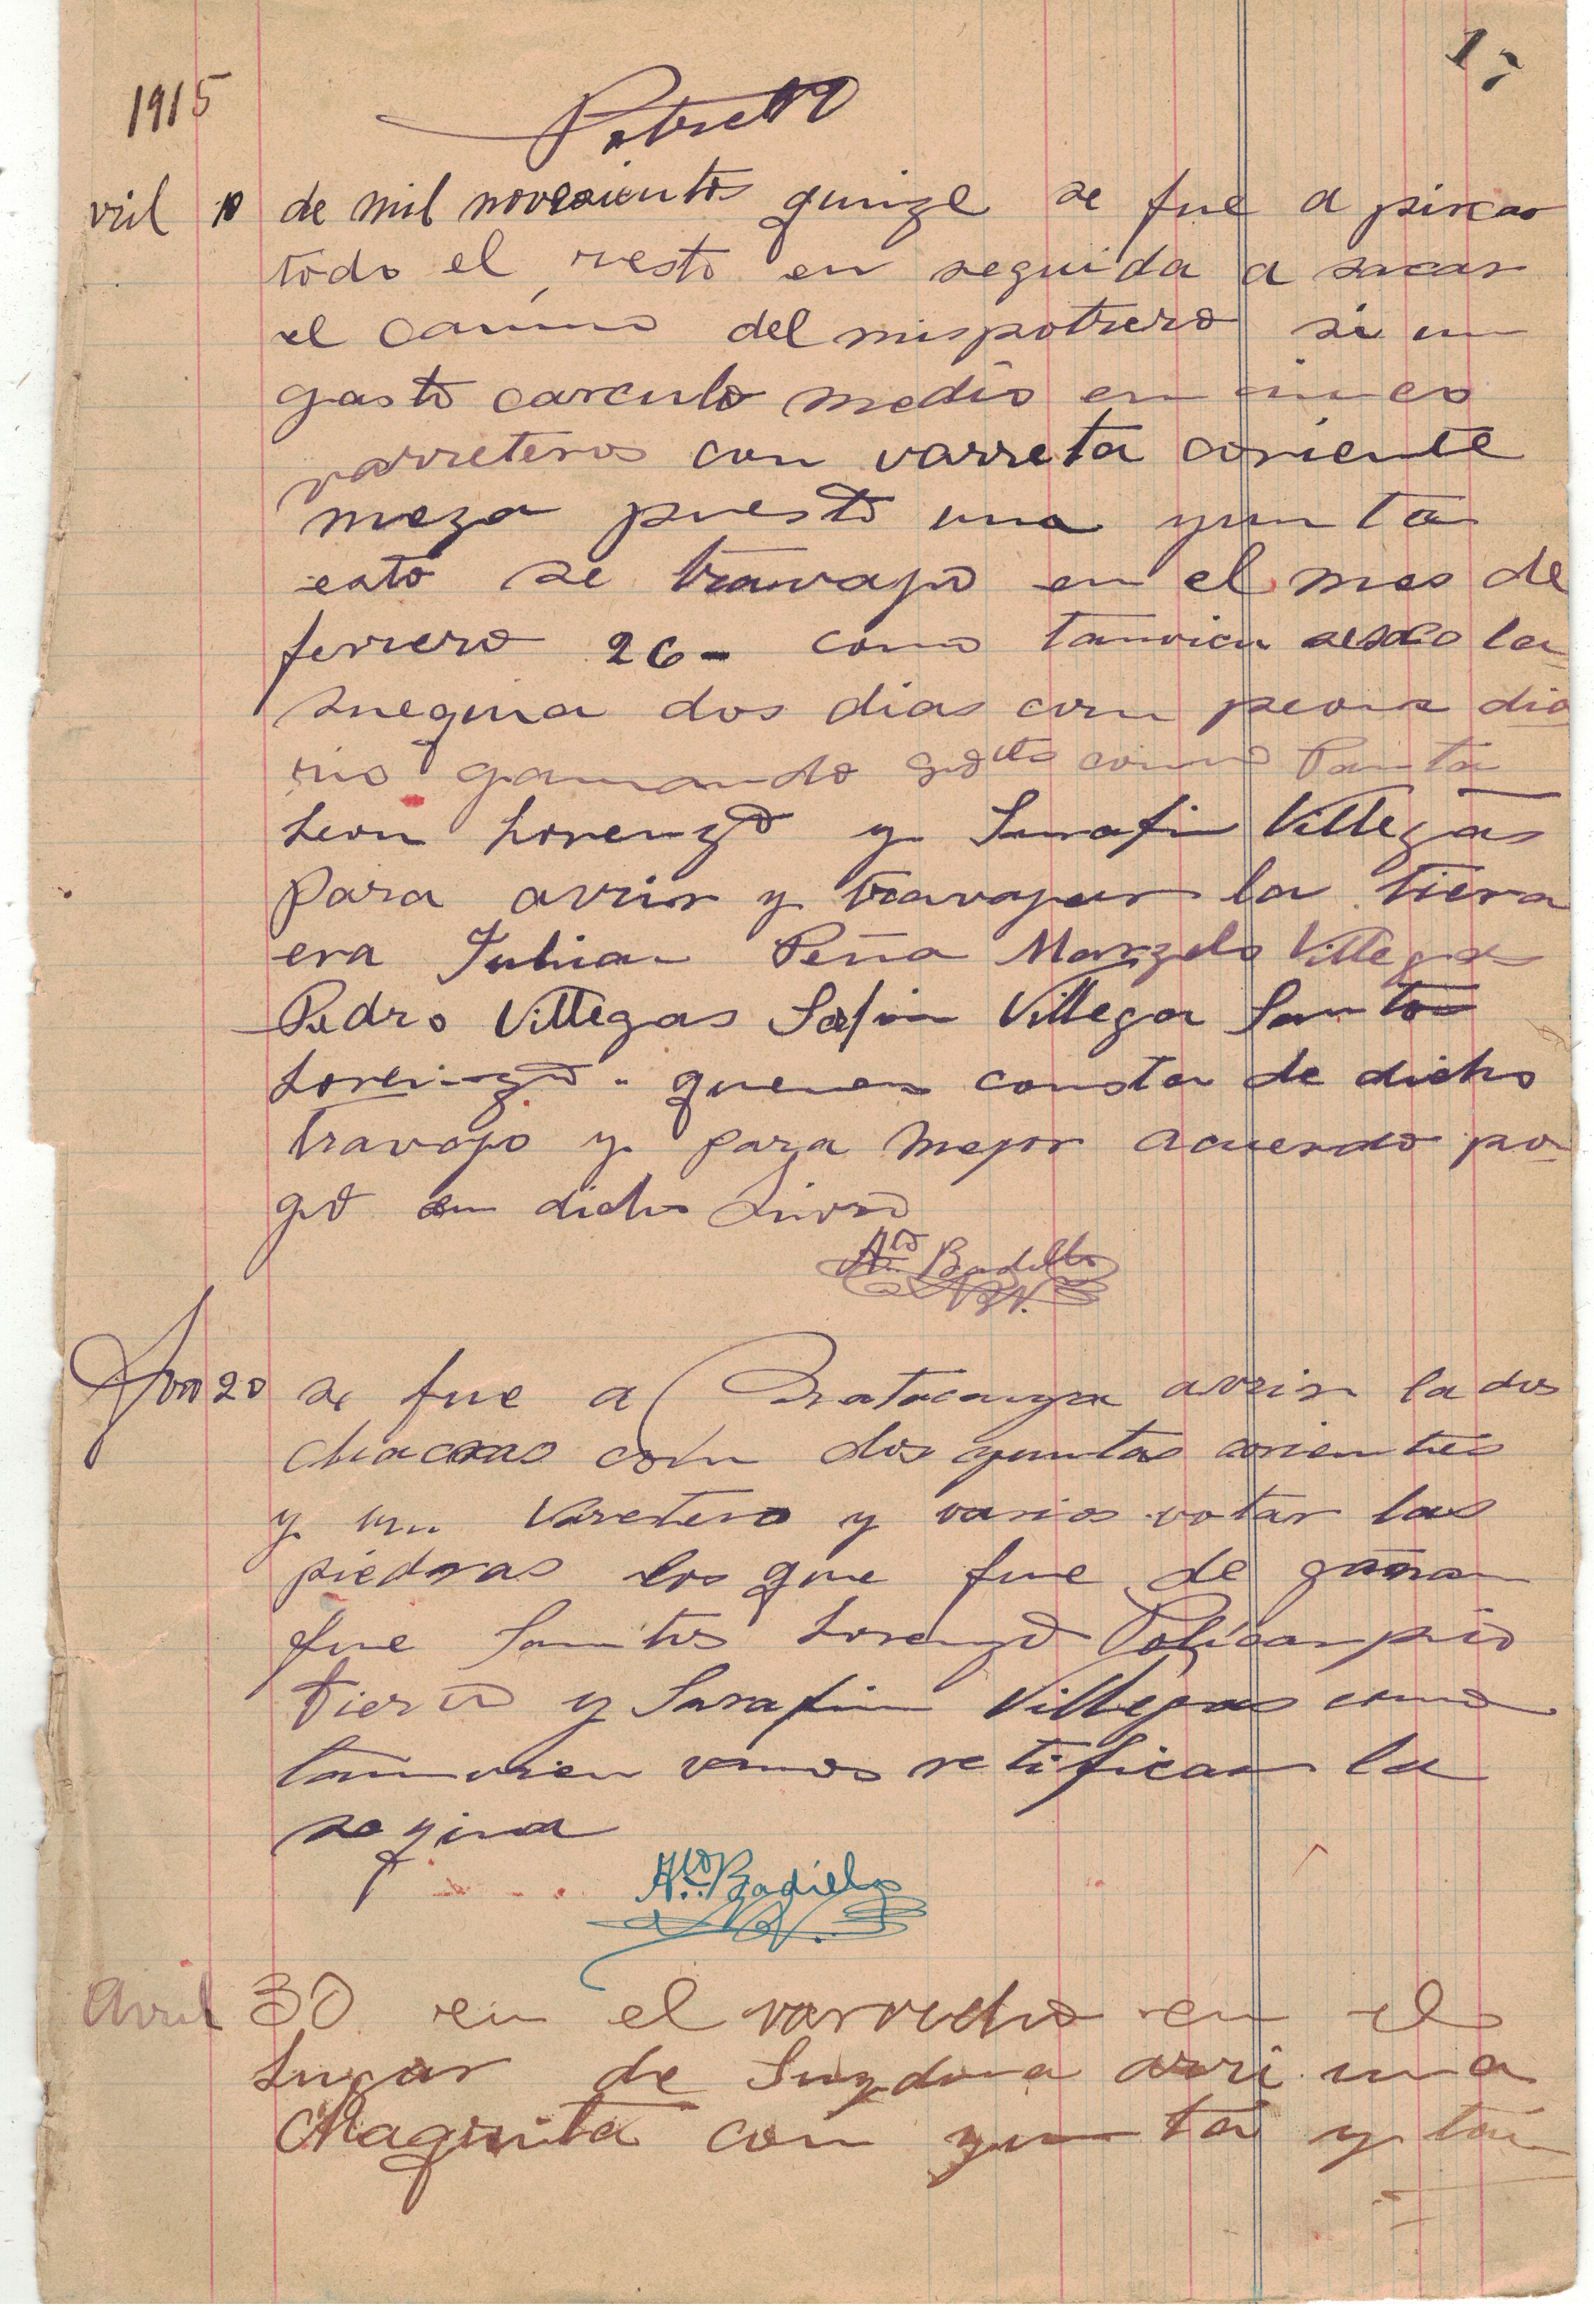 17
1915
Potrero
vril 10 de mil novecientos quinze se fue a pircar
todo el resto en seguida a sacar
el camino del mispotrero si un
gasto carculo medio en cinco
varreteros con varreta coriente
meza puesto una yunta
esto se travajo en el mes de
ferrero 26- como tanvien
snequia dos dias con peons dia
rio ganando como Panta
Leon Lorenzo y Sarafin Villegas
para avrir y travajar la tiera
era Julian Peña Marzelo Villegas
Pedro Villegas Safin Villegas Santos
Lorenzo. quenen consta de dicho
travajo y para mejor acuerdo po-
go en dicho Livro
A.do Badillo
20 se fue a avrir la dos
chacras con dos yuntas corientes
y un Varetero y varios votar las
piedras los que fue de gañan
fue Santos Lorenzo Policarpio
Tierro y Sarafin Villegas como
tanvien vamos retifican la
seqina
A.do Badillo
Avril 30 en el varvecho en el
Lugar de avri una
Chaquita con yunta y tan